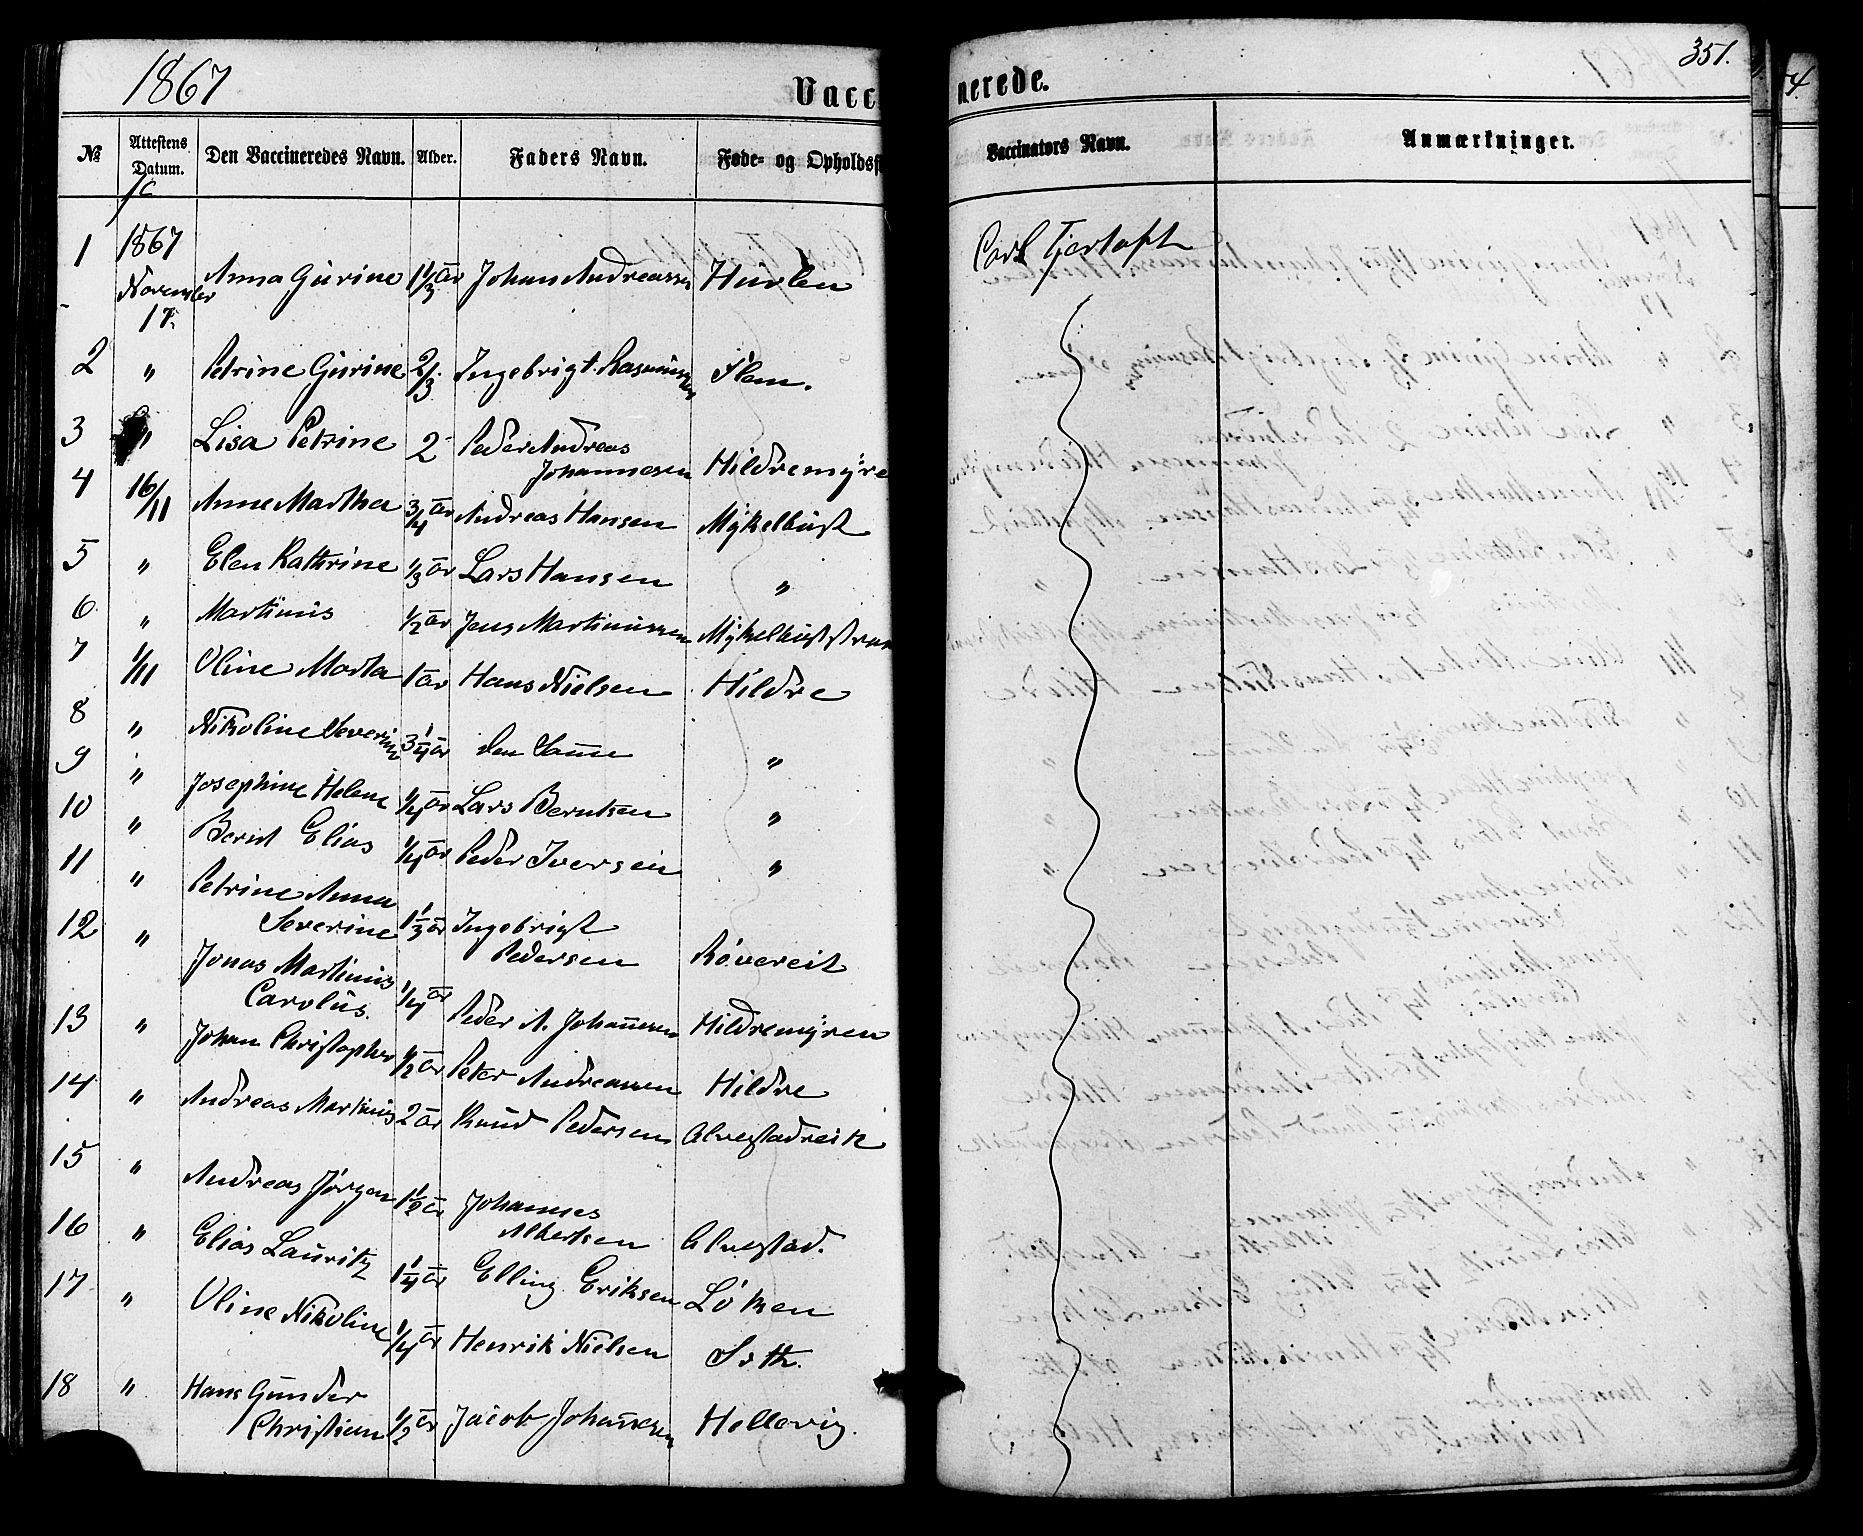 1867
351.
Vacc nerede.
№ Attestens Datum. Den Vaccineredes Navn. Alder. Faders Navn. Føde- og Opholdsst Vaccinators Navn. Anmærkninger.
1 1867 November 17. Anna Gurine 1 1/3 år Johan Andreassen Hurlen Carl Fjertoft
2 " Petrine Gurine 2/3 Ingebrigt Rasmussen Flem.
3 " Lisa Petrine 2 Peder Andreas
Johannesen Hildremyre
4 16/11 Anne Martha 3/4 år Andreas Hansen Mykelbust
5 " Elen Kathrine 1/3 år Lars Hansen "
6 " Martinus 1/2 år Jens Martinussen Mykelbuststran
7 1/11 Oline Marta 1 år Hans Nielsen Hildre
8 " Nikoline Severine 3 1/4 år den Samme "
9 " Josephine Helene 1/4 år Lars Berntsen "
10 " Bernt Elias 1/4 år Peder Iversen "
11 " Petrine Anna
Severine 1 1/3 år Ingebrigt
Pedersen Røvereit
12 " Jonas Martinus
Carolus. 1/4 år Peder A. Johannesen Hildremyren
13 " Johan Christopher 1/2 år Peter Andreassen Hildre
14 " Andreas Martinus 2 år Knud Pedersen Alvestadreit
15 " Andreas Jørgen 1 1/2 år Johannes
Albertsen Alvestad.
16 " Elias Lauritz 1 1/4 år Elling Eriksen Løken
17 " Oline Nikoline 1/4 år Henrik Nielsen
18 " Hans Gunder
Christian 1/2 år Jacob Johannesen Hellevig.